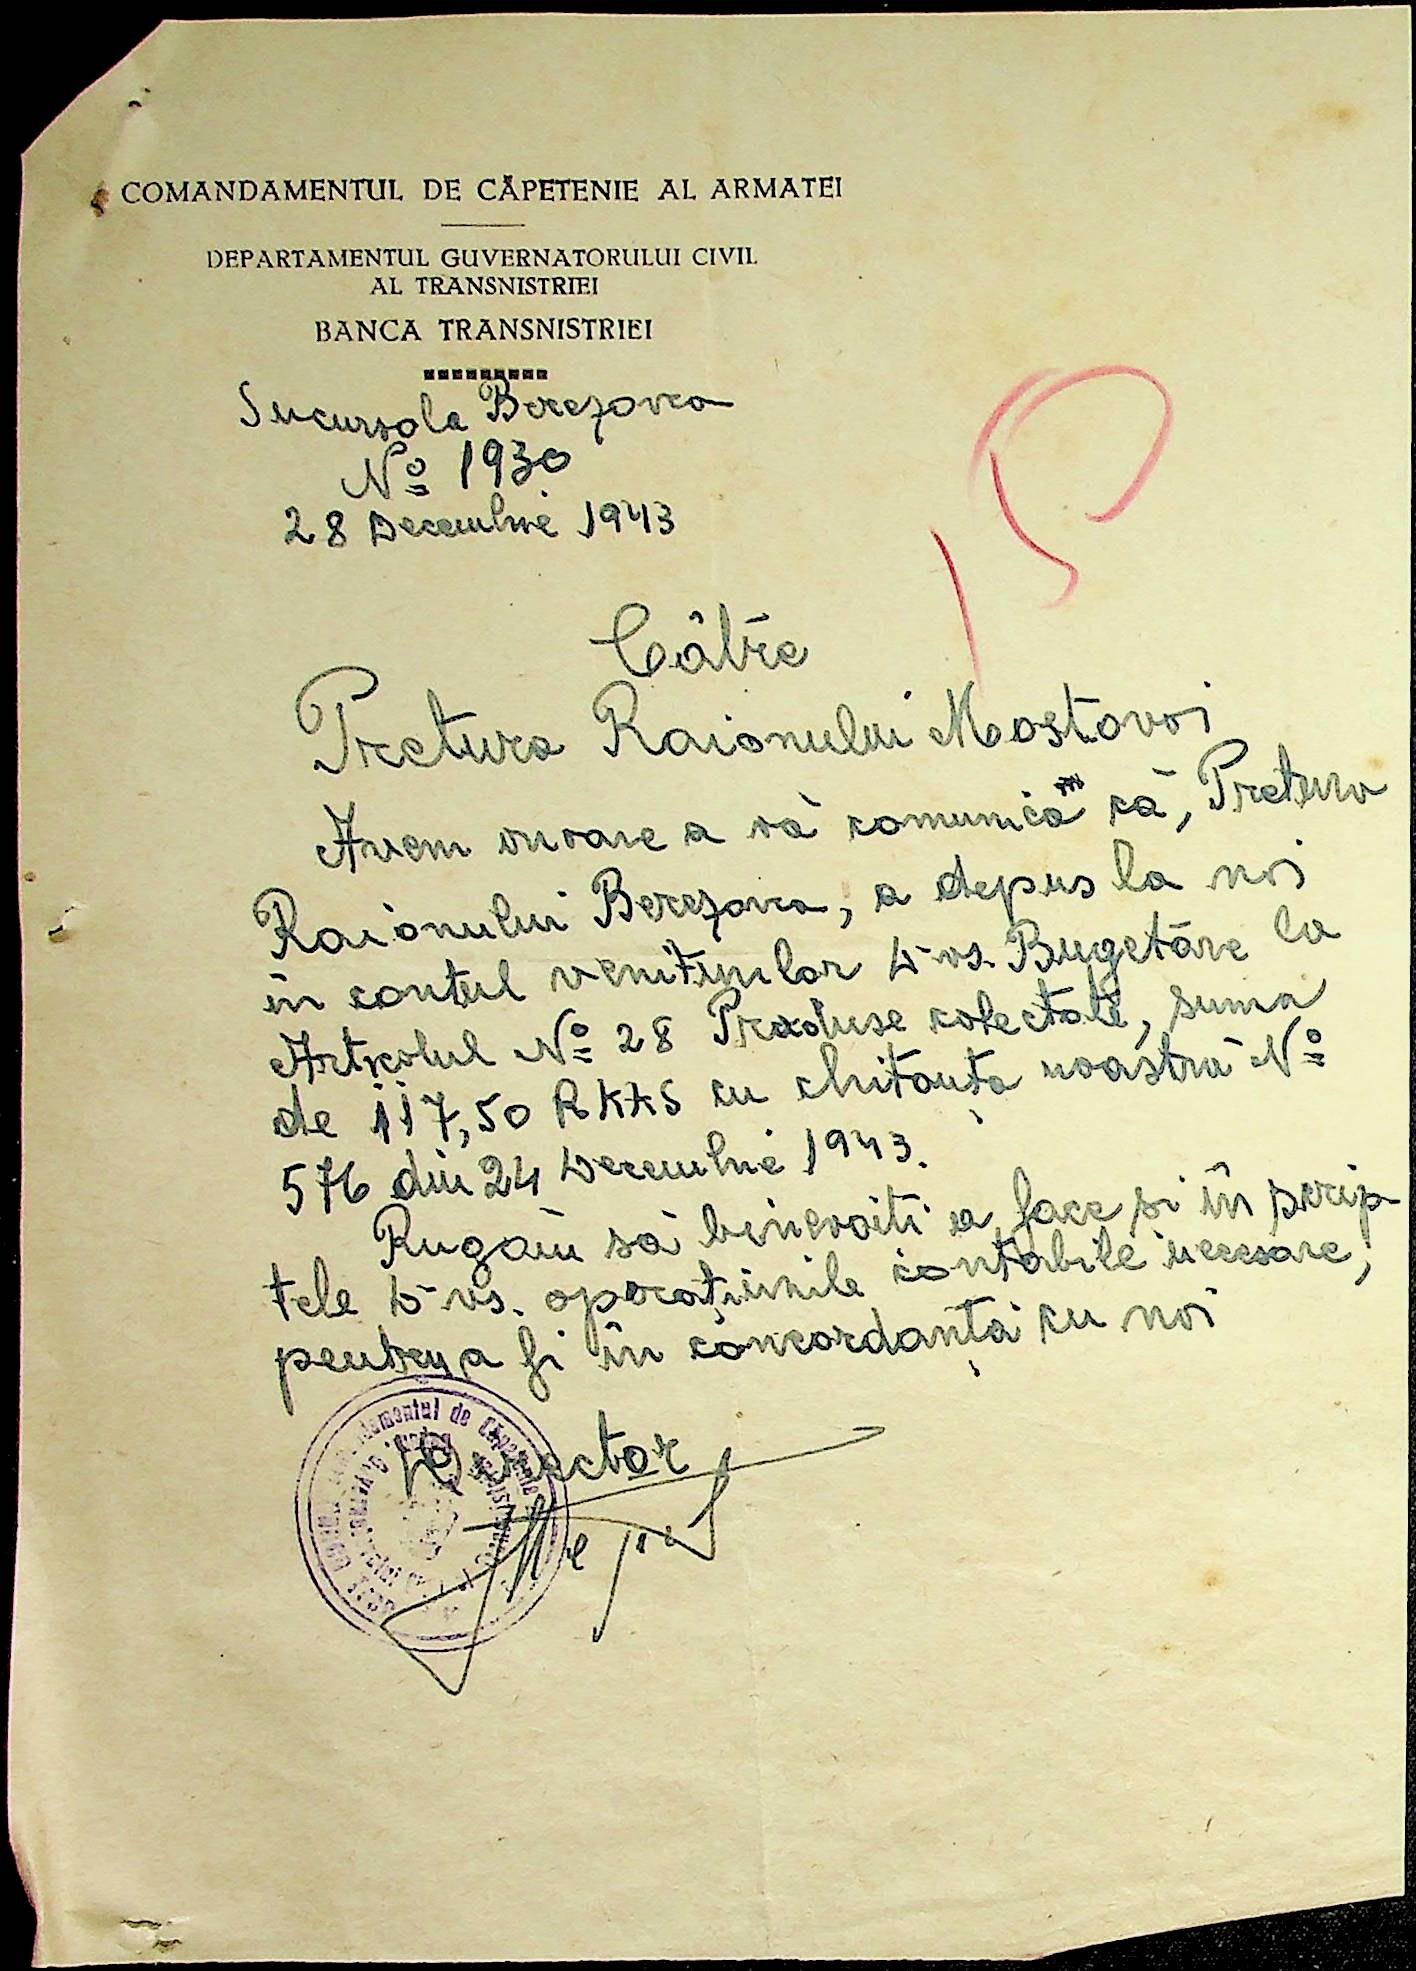 COMANDAMENTUL DE CĂPETENIE AL ARMATEI
DEPARTAMENTUL GUVERNATORULUI CIVIL
AL TRANSNISTRIEI
BANCA TRANSNISTRIEI
Sucursala Berezovca
Nº 1930
28 Decembrie 1943
Cătře
Pretura Raionului Mostovoi
Avem onoare a vă comunica că, Pretura
Raionului Berezovca, a depus la noi
în contul veniturilor D-vs. Bugetăre la
Articolul Nº 28 Produse colectate, suma
de 117,50 RKKS cu chitanța noastră Nº
576 din 24 Decembrie 1943.
Rugăm să binevoiti a face și în scrip-
tele D-vs. operațiunile contabile necesare,
pentru a fi în concordanță cu noi
Director